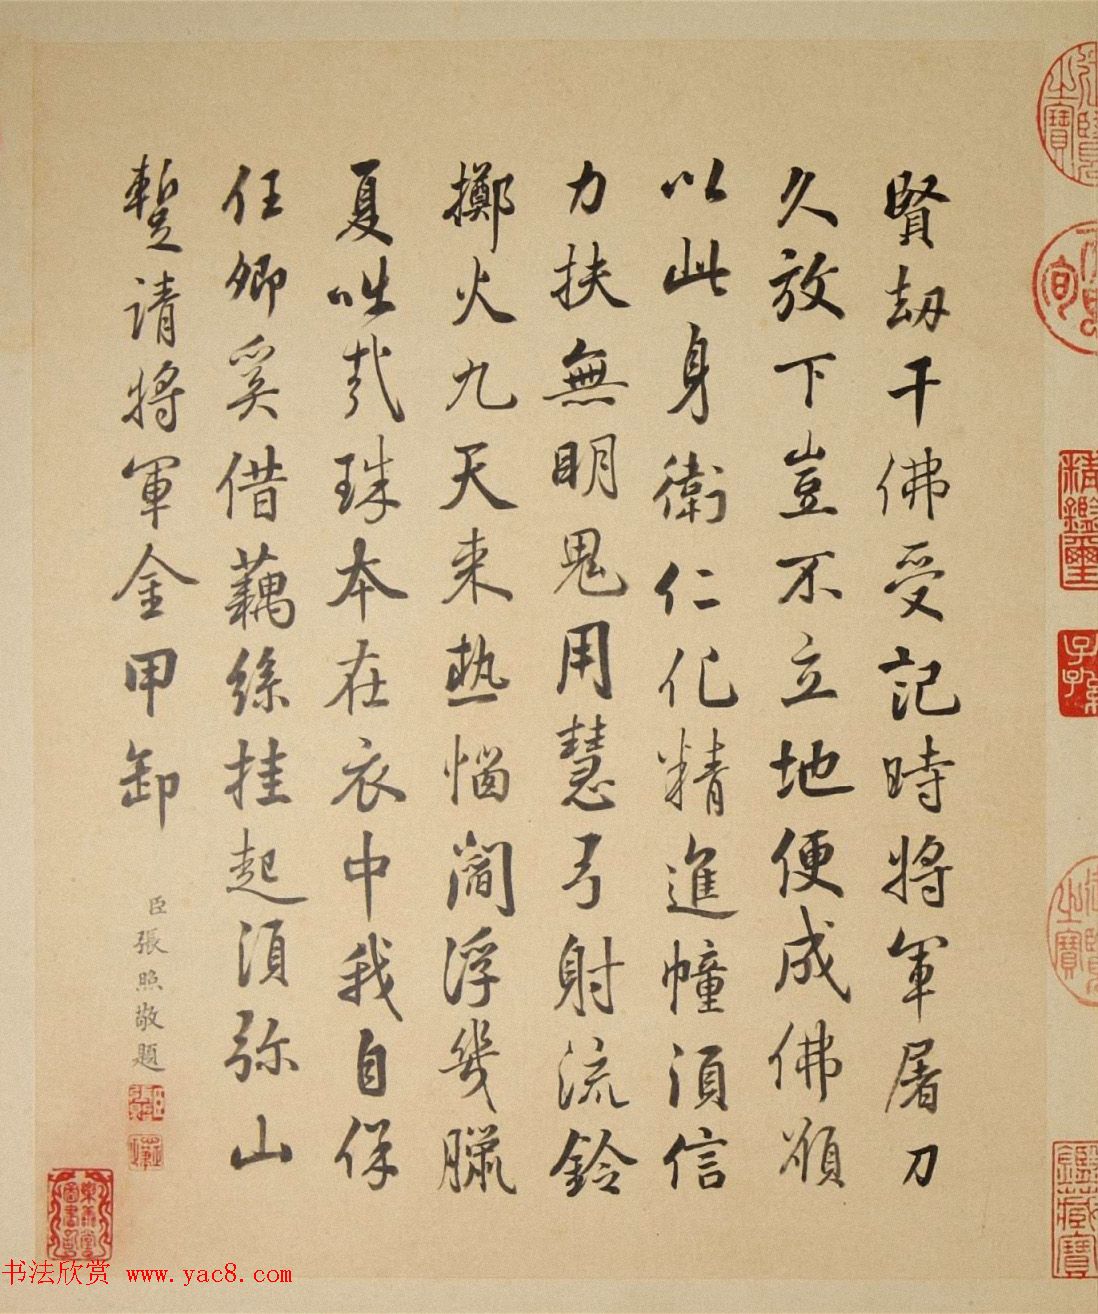 賢劫千佛受記時將軍屠刀
久放下豈不立地便成佛願
以此身衛仁化精進幢須信
力扶無明鬼用慧弓射流鈴
擲火九天來熱惱閻浮幾臘
夏咄哉珠本在衣中我自保
任卿奚借藕絲挂起須弥山
蹔請將軍金甲卸
臣張照敬題
書法欣赏 www.yac8.com